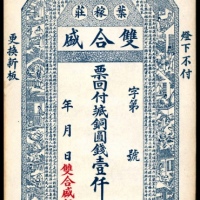 莊稼葉
雙合盛
燈下不付
字第 號
票回付派銅圓錢壹仟
年 月 日
雙合盛
更換新板